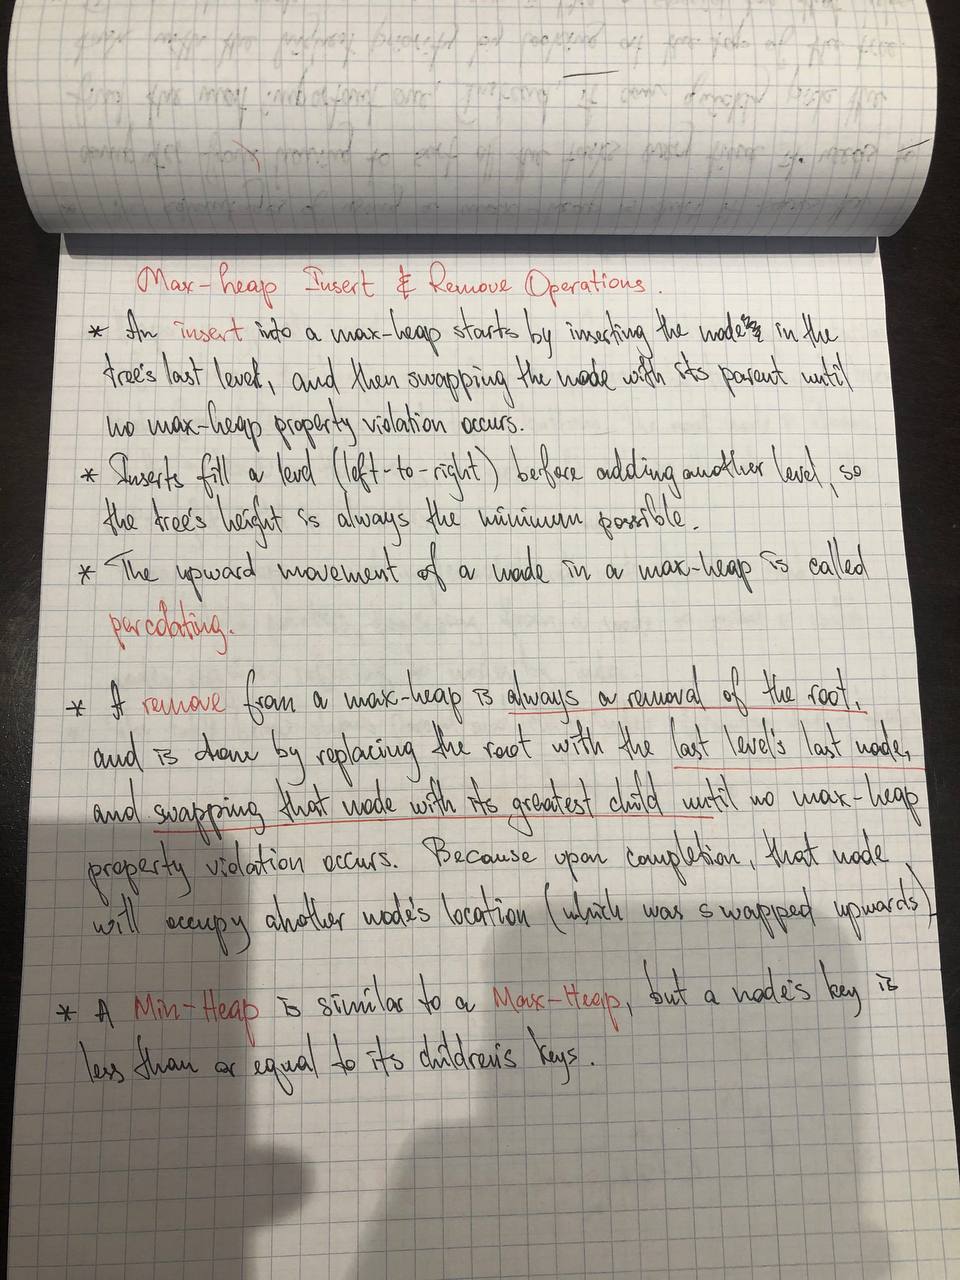 Max-heap Insert & Remove Operations.
* An insert into a max-heap starts by inserting the node in the
tree's last level, and then swapping the node with its parent until
no max-heap property violation occurs.
* Inserts fill a level (left-to-right) before adding another level, so
the tree's height is always the minimum possible.
* The upward movement of a node in a max-heap is called
percolating.
* A remove from a max-heap is always a removal of the root,
and is done by replacing the root with the last level's last node,
and swapping that node with its greatest child until no max-heap
property violation occurs. Because upon completion, that node
will occupy another node's location (which was swapped upwards)
* A Min-Heap is similar to a Max-Heap, but a node's key is
less than or equal to its children's keys.